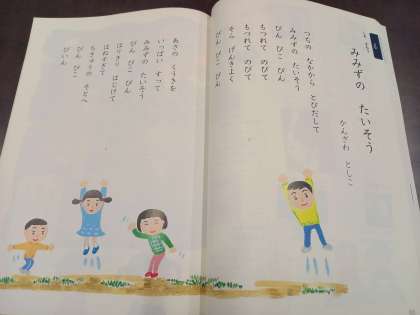 みみずの　たいそう
かんざわ　としこ
つちの　なかから　とびだして
みみずの　たいそう
ぴん　ぴこ　ぴん
もつれて　のびて
もつれて　のびて
そら　げんきよく
ぴん　ぴこ　ぴん
あさの　くうきを
いっぱい　すって
みみずの　たいそう
ぴん　ぴこ　ぴん
はりきり　はじけて
はねすぎて
ちきゅうの　そとへ
ぴん　ぴこ
ぴいん